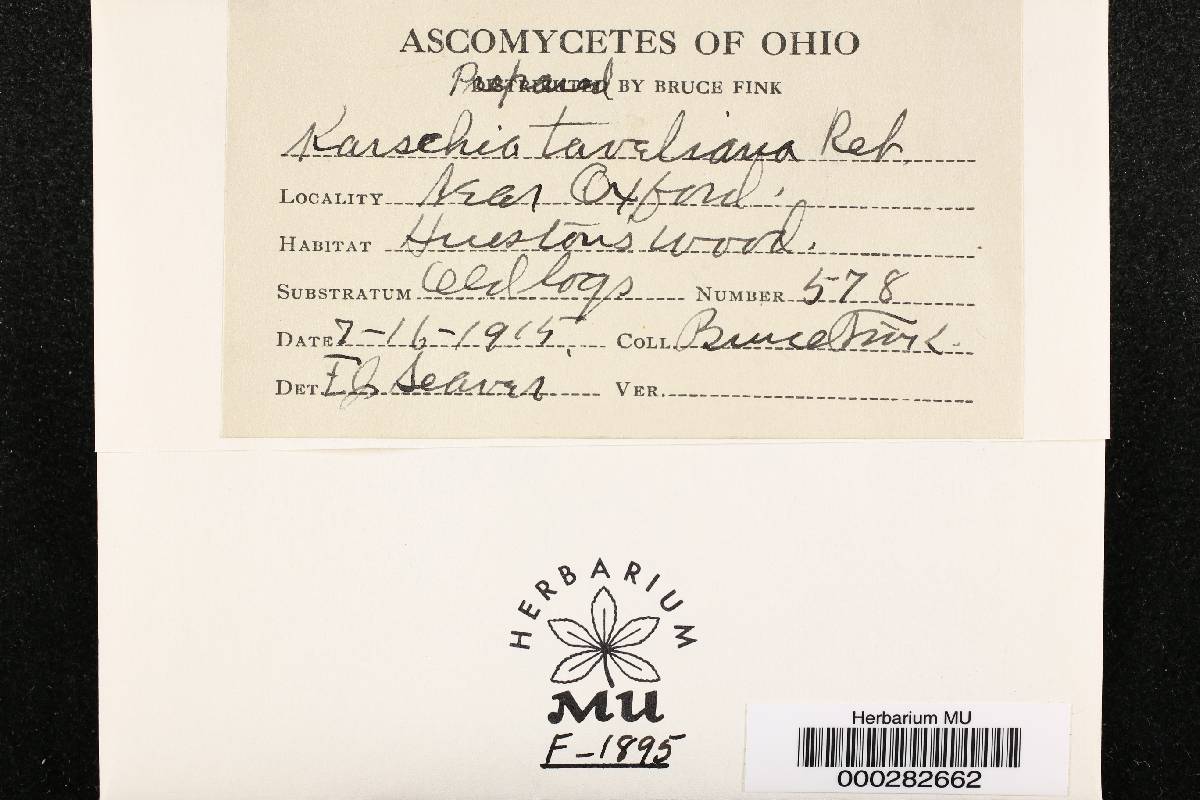 ASCOMYCETES OF OHIO
Prepared DISTRIBUTED BY BRUCE FINK
Karschia taveliana Reh.
LOCALITY Near Oxford.
HABITAT Hueston's Wood.
SUBSTRATUM Old logs NUMBER 578
DATE 7-16-1915. COLL. Bruce Fink.
DET. F J Seaver VER.
HERBARIUM
MU
F-1895
Herbarium MU
000282662